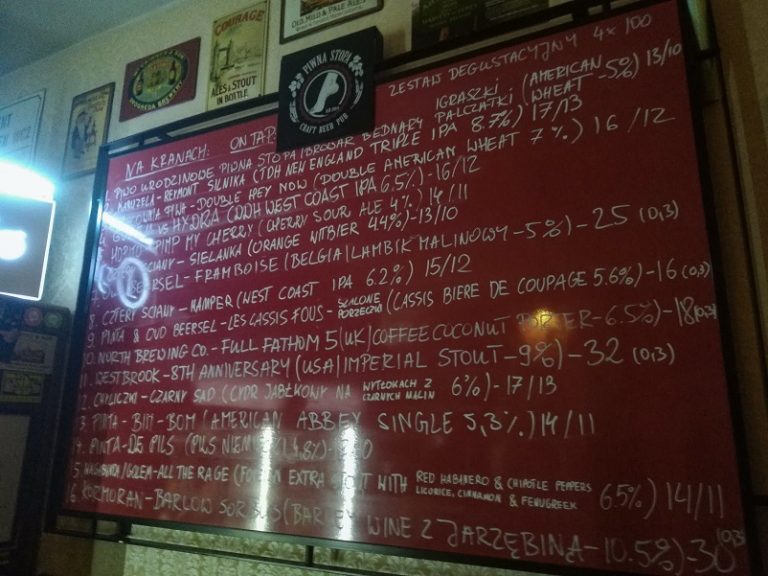 COURAGE
ALES & STOUT
IN BOTTLE
OLD, MILD & PALE ALES
PIWNA STOPA
CRAFT BEER PUB
ZESTAW DEGUSTACYJNY 4x100
NA KRANACH: ON TAP:
1. PIWO URODZINOWE PIWNA STOPA/BROWAR BEDNARY IGRASZKI PALCZATKI (AMERICAN WHEAT -5%) 13/10
REYMONT SILNIKA (TDH NEW ENGLAND TRIPLE IPA 8.7%) 17/13
DOUBLE HEY NOW (DOUBLE AMERICAN WHEAT 7%) 16/12
4. VS HYDRA (DDH WEST COAST IPA 6.5%) -16/12
PIMP MY CHERRY (CHERRY SOUR ALE 4%) 14/11
ŚCIANY - SIELANKA (ORANGE WITBIER 4.4%) -13/10
BEERSEL - FRAMBOISE (BELGIA | LAMBIK MALINOWY -5%) - 25 (0,3)
8. CZTERY ŚCIANY - HAMPER (WEST COAST IPA 6.2%) 15/12
9. PINTA & OUD BEERSEL - LES CASSIS FOUS - SZALONE PORZECZKI (CASSIS BIERE DE COUPAGE 5.6%) -16 (0,3)
10. NORTH BREWING CO. - FULL FATHOM 5 (UK | COFFEE COCONUT PORTER - 6.5%) - 18 (0,3)
11. WESTBROOK - 8TH ANNIVERSARY (USA | IMPERIAL STOUT - 9%) - 32 (0,3)
12. CHYLICZKI - CZARNY SAD (CYDR JABŁKOWY NA WYTŁOKACH Z CZARNYCH MALIN 6%) - 17/13
13. PINTA - BIM - BOM (AMERICAN ABBEY SINGLE 5,3%) 14/11
14. PINTA - DE PILS (PILS
15. GOLEM - ALL THE RAGE (FOREIGN EXTRA STOUT WITH RED HABANERO & CHIPOTLE PEPPERS LICORICE, CINNAMON & FENUGREEK 6.5%) 14/11
16. KORMORAN - BARLOW SORBUS (BARLEY WINE Z JARZĘBINĄ - 10.5%) 30 (0,3)